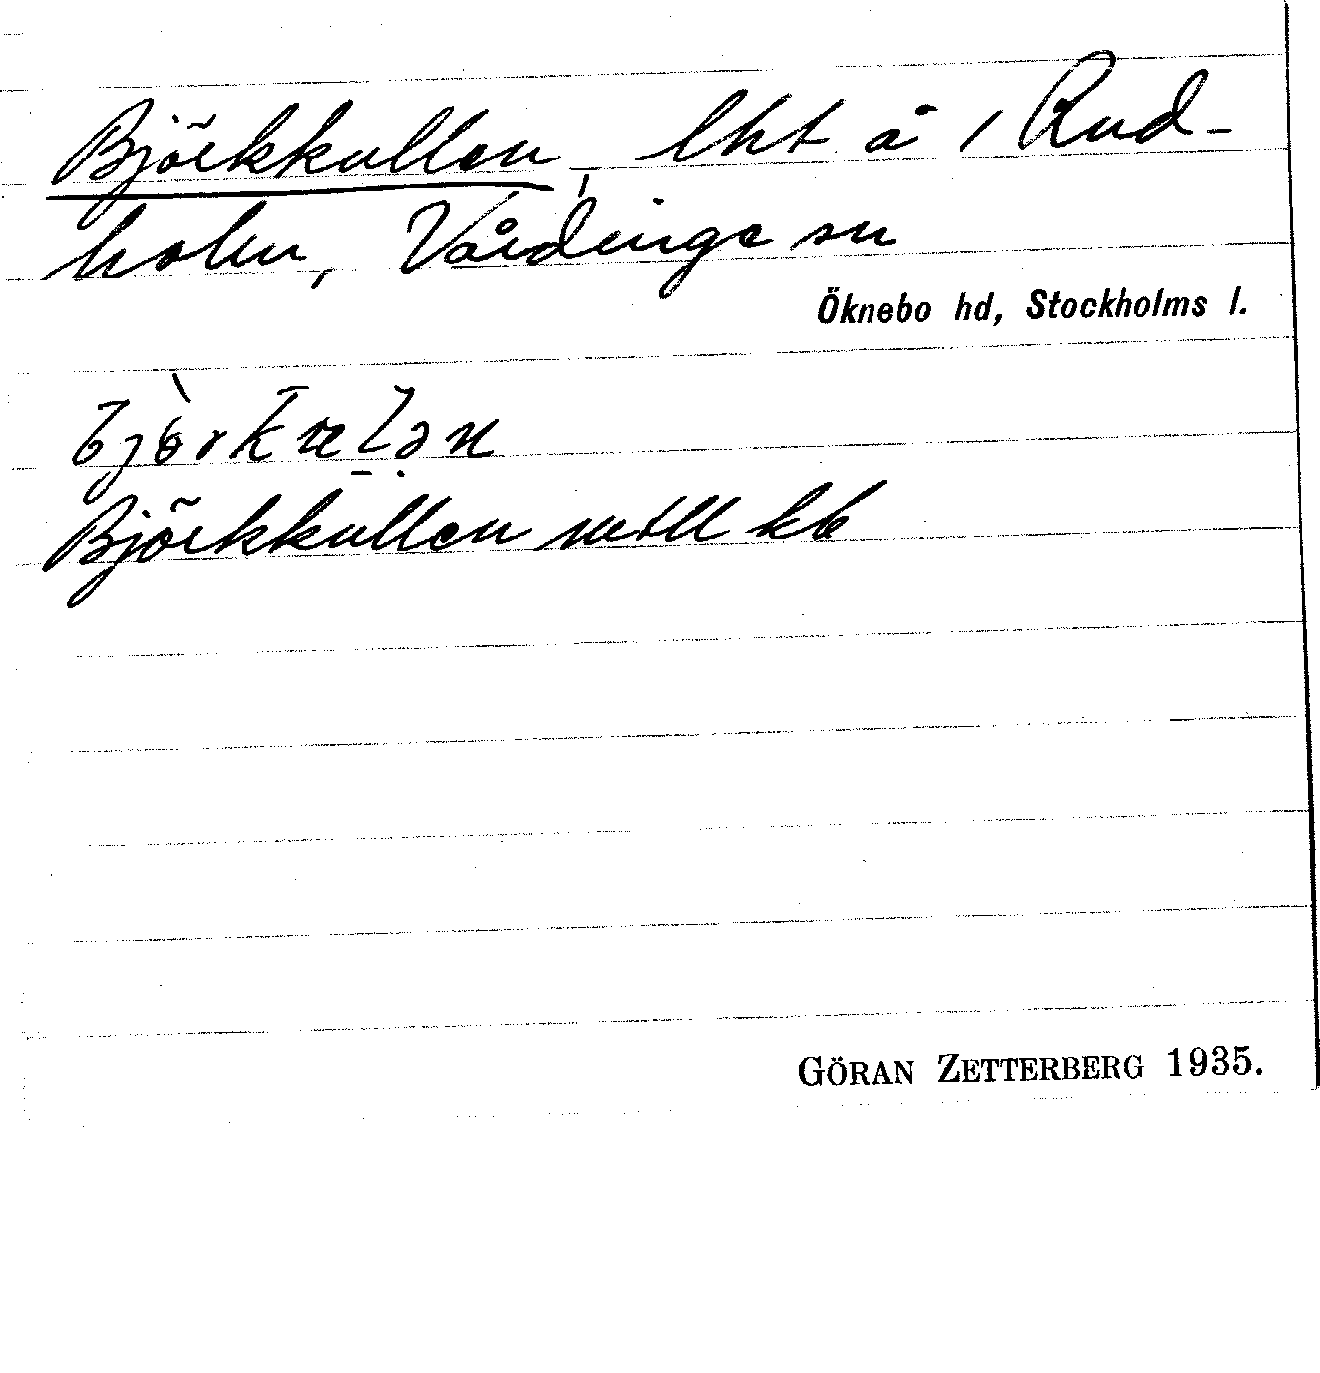 Björkkullen, lht å 1 Rud-
holm, Vårdinge sn
Öknebo hd, Stockholms l.
Björkkullen mtll kb
GÖRAN ZETTERBERG 1935.